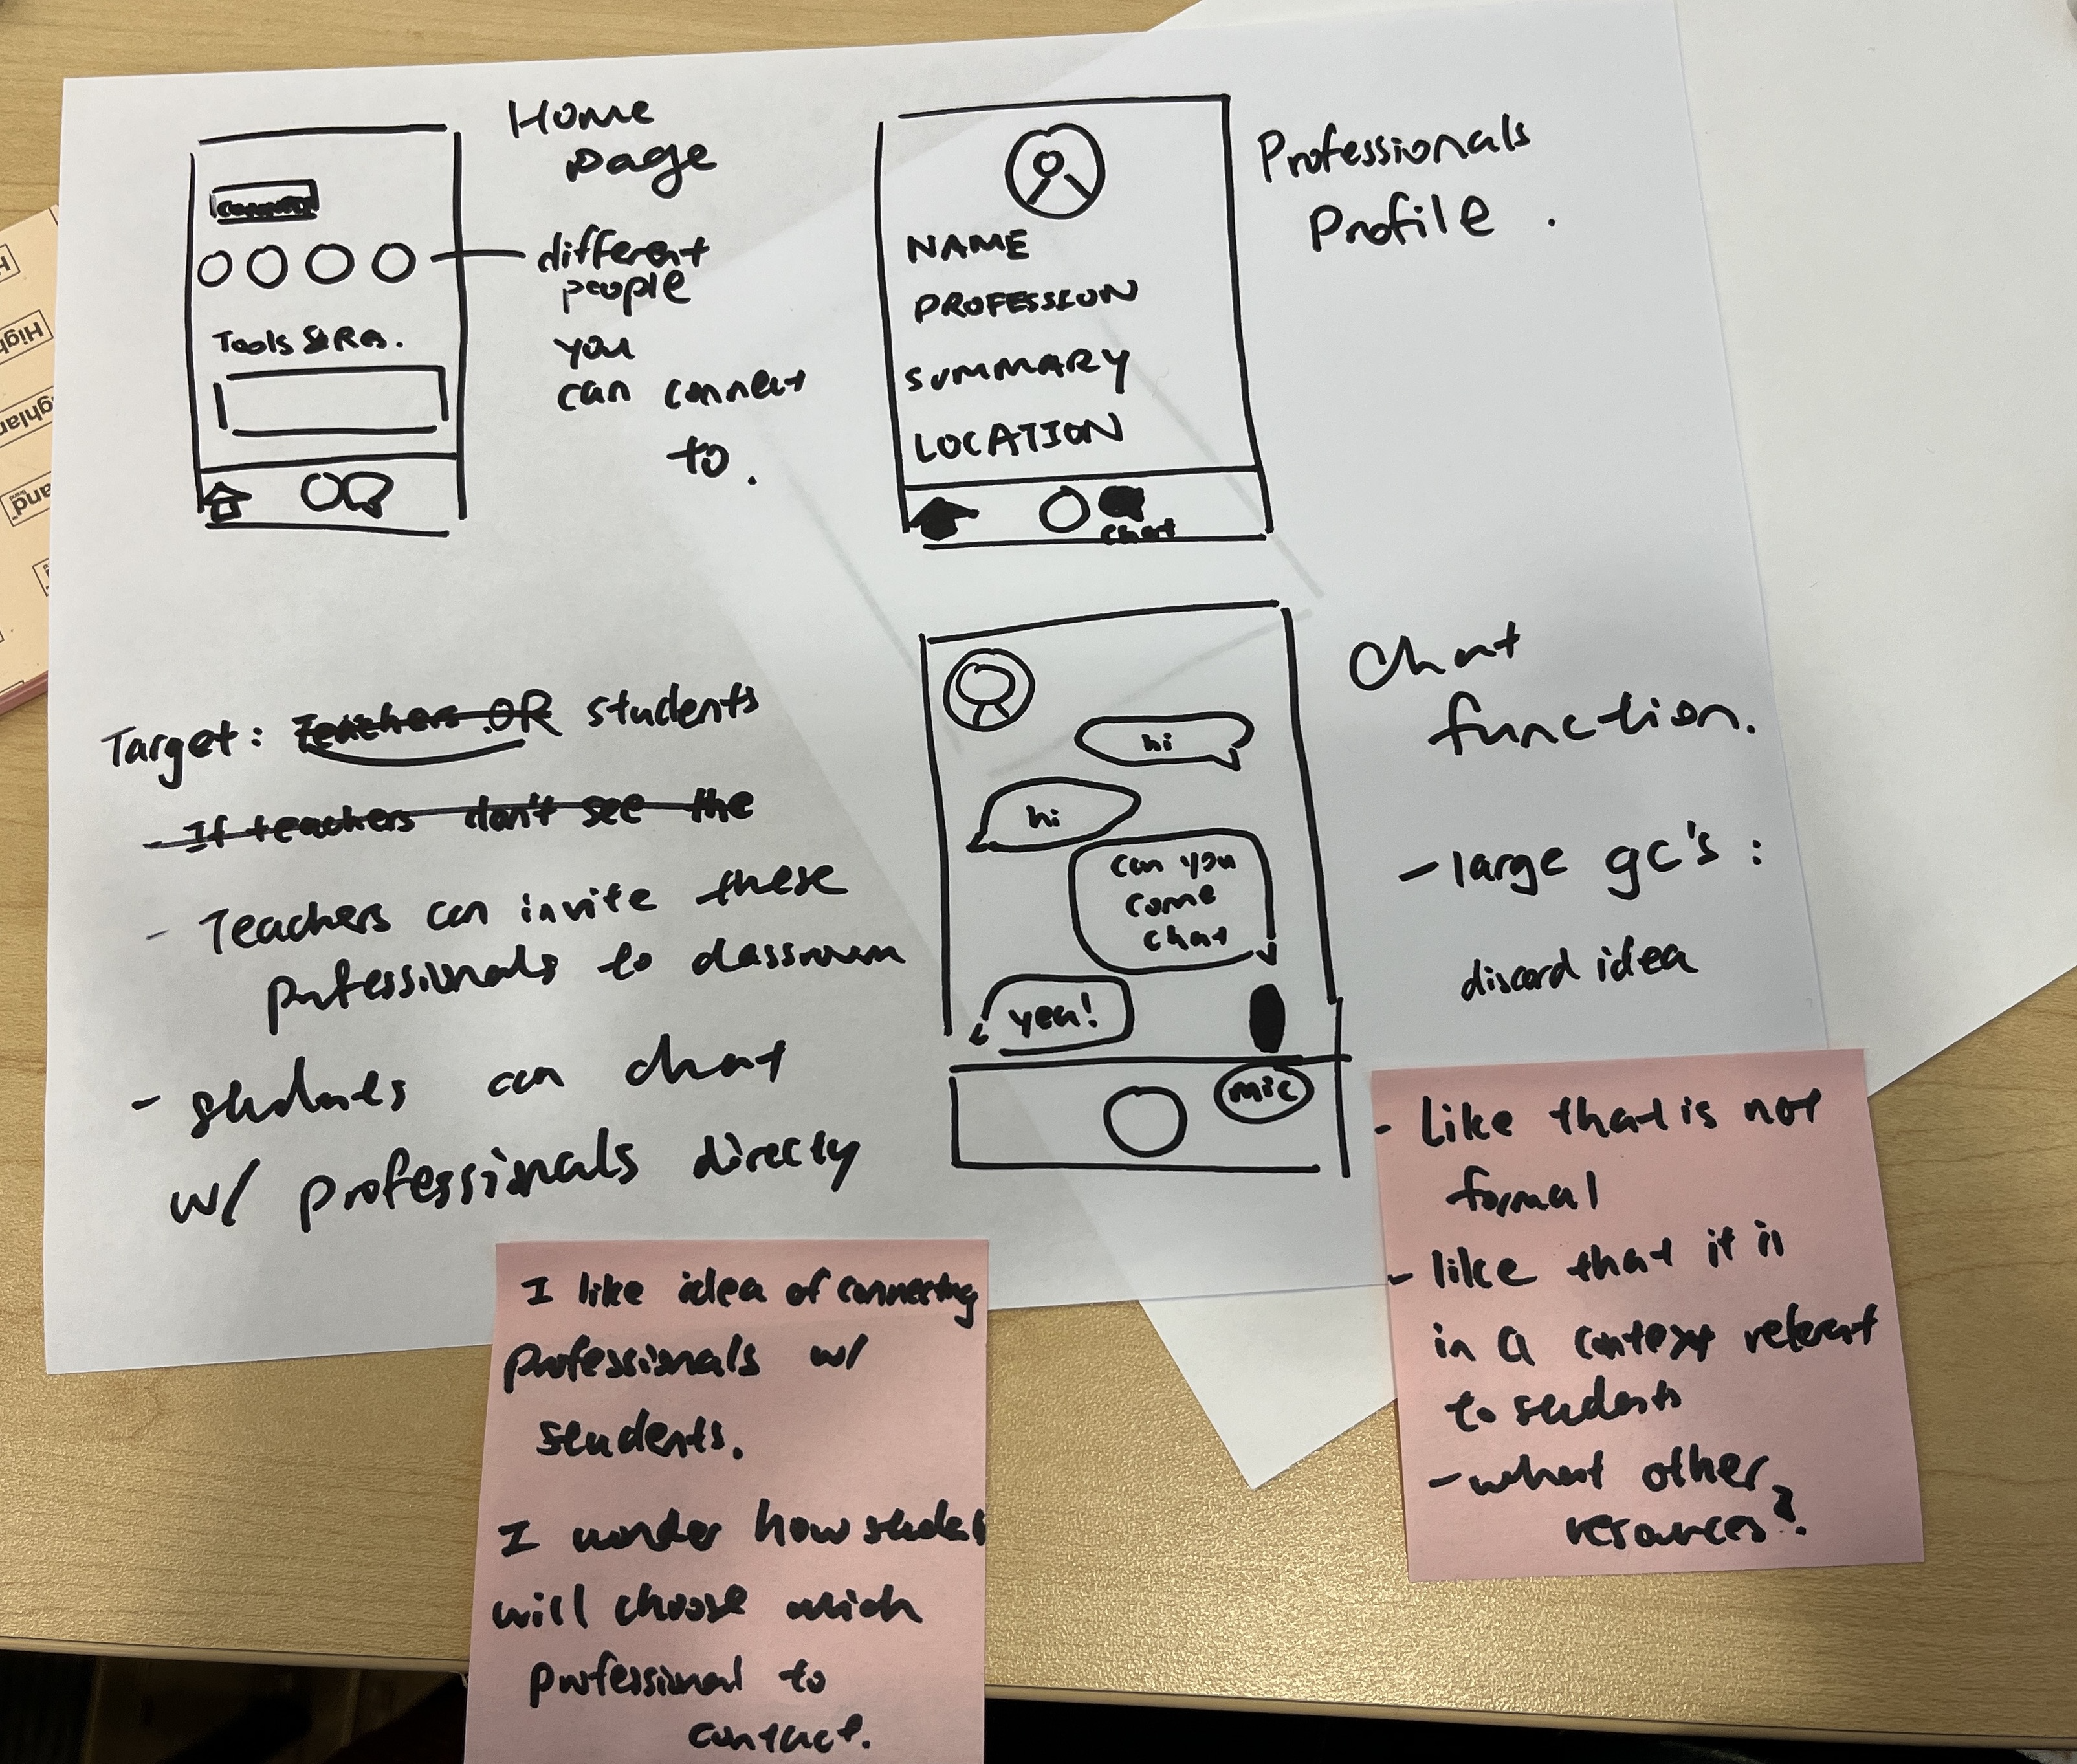 Home
page
different
people
you
can connect
to.
Tools & Res.
Professionals
Profile.
NAME
PROFESSION
SUMMARY
LOCATION
chat
Target: Teachers OR students
- If teachers don't see the
- Teachers can invite these
professionals to classroom
- students can chat
w/ professionals directy
hi
hi
can you
come
chat
yea!
mic
Chat
function.
- large gc's:
discord idea
- like that is not
formal
- like that it is
in a context relevant
to students
- what other
resources?
I like idea of connecting
professionals w/
students.
I wonder how students
will choose which
professional to
contact.
High
and